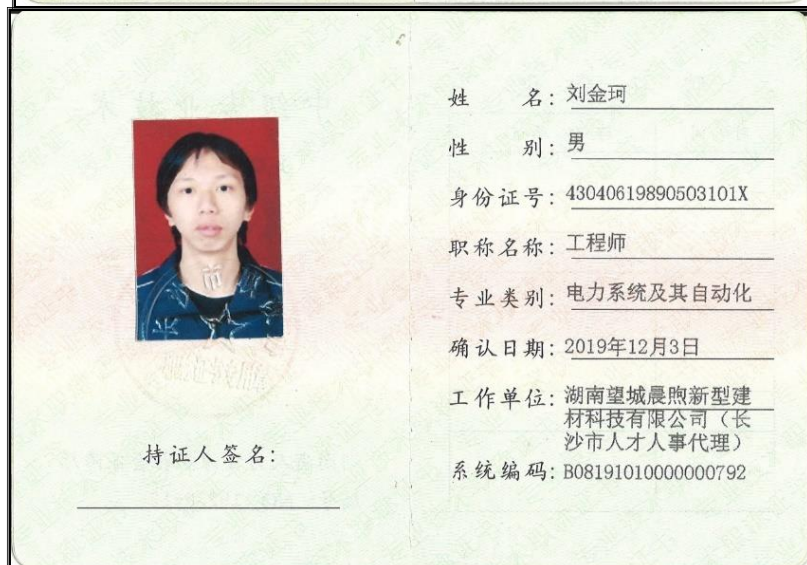 姓 名: 刘金珂
性 别: 男
身份证号: 43040619890503101X
职称名称: 工程师
专业类别: 电力系统及其自动化
确认日期: 2019年12月3日
工作单位: 湖南望城晨煦新型建
材料科技有限公司（长
沙市人才人事代理）
系统编码: B08191010000000792
持证人签名: